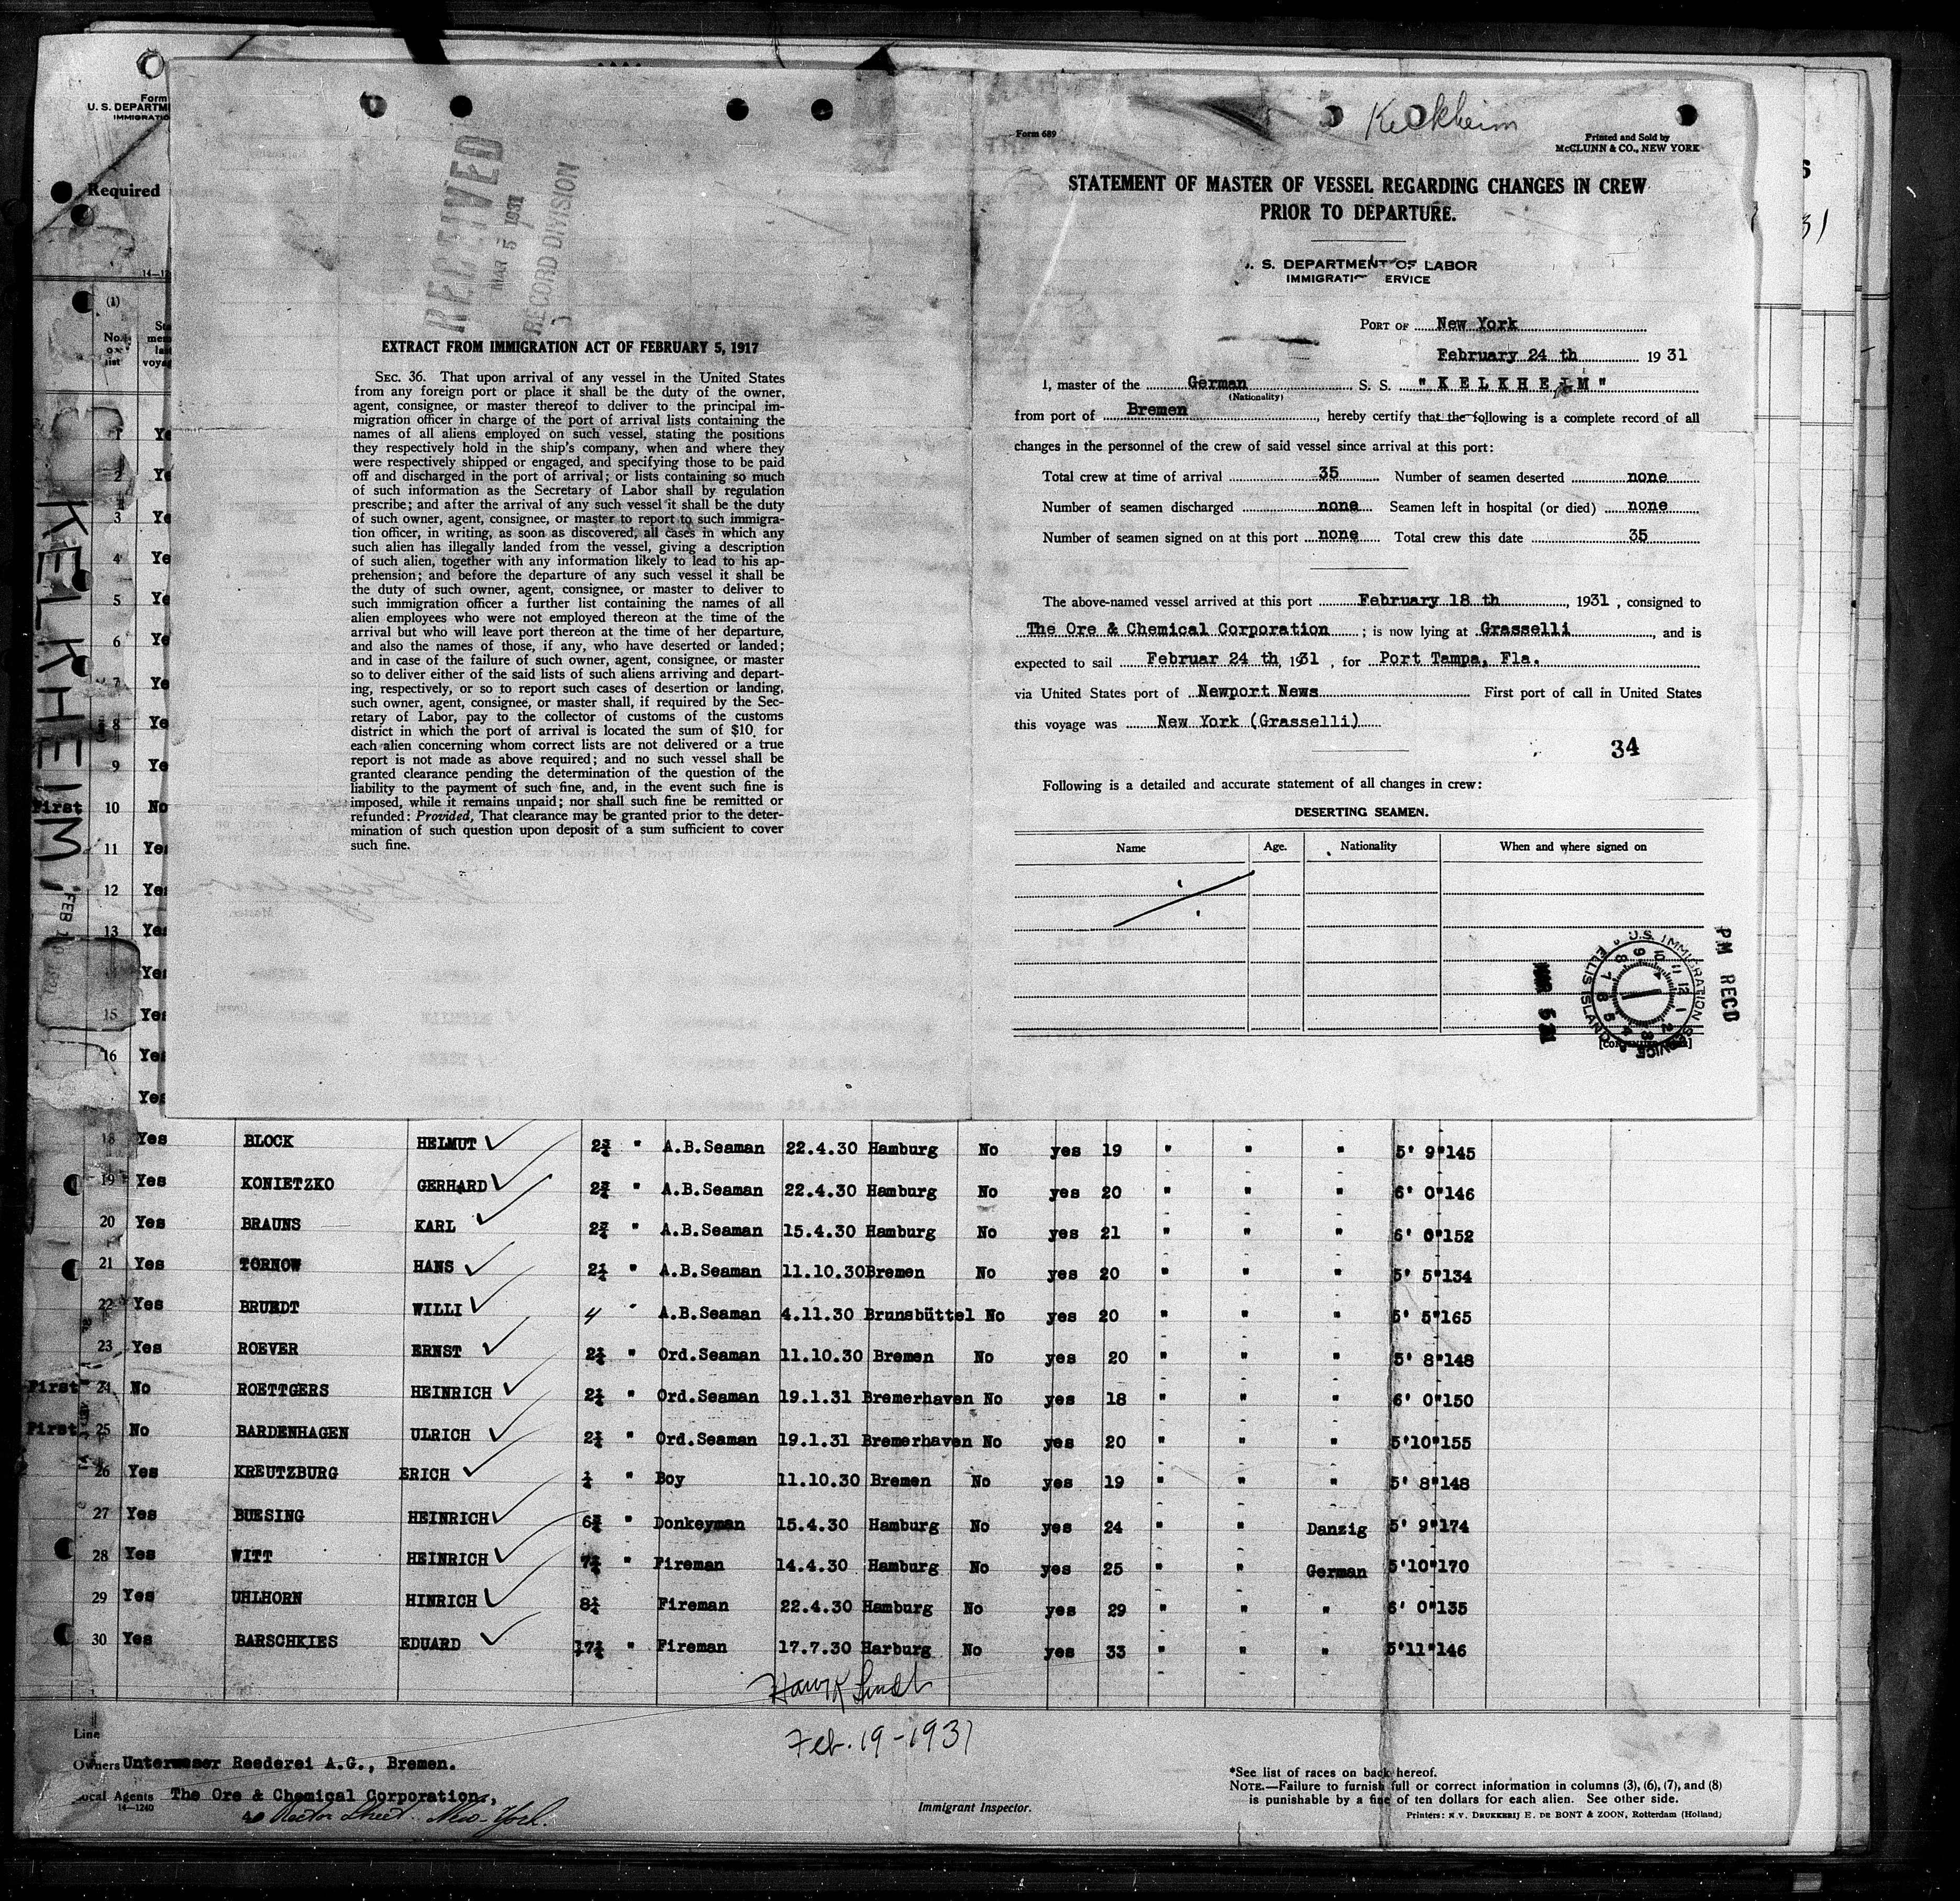 Form
U. S. DEPARTM
IMMIGRATIO
Required
14—12
(1)
No. on list
KELKHEIM
FEB
1 Ye
2 Ye
3 Ye
4 Ye
5 Ye
6 Ye
7 Ye
8 Ye
9 Ye
First 10 No
11 Yes
12 Yes
13 Yes
Yes
15 Yes
16 Yes
Yes
RECEIVED
MAR 5 1931
RECORD DIVISION
EXTRACT FROM IMMIGRATION ACT OF FEBRUARY 5, 1917
SEC. 36. That upon arrival of any vessel in the United States
from any foreign port or place it shall be the duty of the owner,
agent, consignee, or master thereof to deliver to the principal im-
migration officer in charge of the port of arrival lists containing the
names of all aliens employed on such vessel, stating the positions
they respectively hold in the ship's company, when and where they
were respectively shipped or engaged, and specifying those to be paid
off and discharged in the port of arrival; or lists containing so much
of such information as the Secretary of Labor shall by regulation
prescribe; and after the arrival of any such vessel it shall be the duty
of such owner, agent, consignee, or master to report to such immigra-
tion officer, in writing, as soon as discovered, all cases in which any
such alien has illegally landed from the vessel, giving a description
of such alien, together with any information likely to lead to his ap-
prehension; and before the departure of any such vessel it shall be
the duty of such owner, agent, consignee, or master to deliver to
such immigration officer a further list containing the names of all
alien employees who were not employed thereon at the time of the
arrival but who will leave port thereon at the time of her departure,
and also the names of those, if any, who have deserted or landed;
and in case of the failure of such owner, agent, consignee, or master
so to deliver either of the said lists of such aliens arriving and depart-
ing, respectively, or so to report such cases of desertion or landing,
such owner, agent, consignee, or master shall, if required by the Sec-
retary of Labor, pay to the collector of customs of the customs
district in which the port of arrival is located the sum of $10 for
each alien concerning whom correct lists are not delivered or a true
report is not made as above required; and no such vessel shall be
granted clearance pending the determination of the question of the
liability to the payment of such fine, and, in the event such fine is
imposed, while it remains unpaid; nor shall such fine be remitted or
refunded: Provided, That clearance may be granted prior to the deter-
mination of such question upon deposit of a sum sufficient to cover
such fine.
Form 689
Kelkheim
Printed and Sold by
McCLUNN & CO., NEW YORK
STATEMENT OF MASTER OF VESSEL REGARDING CHANGES IN CREW
PRIOR TO DEPARTURE.
. S. DEPARTMENT OF LABOR
IMMIGRATI ERVICE
PORT OF New York
February 24 th 1931
I, master of the German S. S. "KELKHEIM"
(Nationality)
from port of Bremen, hereby certify that the following is a complete record of all
changes in the personnel of the crew of said vessel since arrival at this port:
Total crew at time of arrival 35 Number of seamen deserted none
Number of seamen discharged none Seamen left in hospital (or died) none
Number of seamen signed on at this port none Total crew this date 35
The above-named vessel arrived at this port February 18 th, 1931, consigned to
The Ore & Chemical Corporation; is now lying at Grasselli, and is
expected to sail Februar 24 th, 1931, for Port Tampa, Fla.
via United States port of Newport News First port of call in United States
this voyage was New York (Grasselli)
34
Following is a detailed and accurate statement of all changes in crew:
DESERTING SEAMEN.
Name Age. Nationality When and where signed on
U.S. IMMIGRATION SERVICE ELLIS ISLAND
PM RECD
18 Yes BLOCK HELMUT 2¾ " A.B.Seaman 22.4.30 Hamburg No yes 19 " " " 5' 9" 145
19 Yes KONIETZKO GERHARD 2¾ " A.B.Seaman 22.4.30 Hamburg No yes 20 " " " 6' 0" 146
20 Yes BRAUNS KARL 2¾ " A.B.Seaman 15.4.30 Hamburg No yes 21 " " " 6' 0" 152
21 Yes TORNOW HANS 2¼ " A.B.Seaman 11.10.30 Bremen No yes 20 " " " 5' 5" 134
22 Yes BRUEDT WILLI 4 " A.B.Seaman 4.11.30 Brunsbüttel No yes 20 " " " 5' 5" 165
23 Yes ROEVER ERNST " Ord.Seaman 11.10.30 Bremen No yes 20 " " " 5' 8" 148
First 24 No ROETTGERS HEINRICH " Ord.Seaman 19.1.31 Bremerhaven No yes 18 " " " 6' 0" 150
First 25 No BARDENHAGEN ULRICH " Ord.Seaman 19.1.31 Bremerhaven No yes 20 " " " 5'10" 155
26 Yes KREUTZBURG ERICH " Boy 11.10.30 Bremen No yes 19 " " " 5' 8" 148
27 Yes BUESING HEINRICH 6¾ " Donkeyman 15.4.30 Hamburg No yes 24 " " Danzig 5' 9" 174
28 Yes WITT HEINRICH " Fireman 14.4.30 Hamburg No yes 25 " " German 5'10" 170
29 Yes UHLHORN HINRICH Fireman 22.4.30 Hamburg No yes 29 " " " 6' 0" 135
30 Yes BARSCHKIES EDUARD " Fireman 17.7.30 Harburg No yes 33 " " " 5'11" 146
Feb. 19-1931
Line
Owners Unterweser Reederei A.G., Bremen.
Local Agents The Ore & Chemical Corporation,
40 Rector Street. New-York.
14—1240
Immigrant Inspector.
*See list of races on back hereof.
NOTE.—Failure to furnish full or correct information in columns (3), (6), (7), and (8)
is punishable by a fine of ten dollars for each alien. See other side.
Printers: N.V. DRUKKERIJ E. DE BONT & ZOON, Rotterdam (Holland)